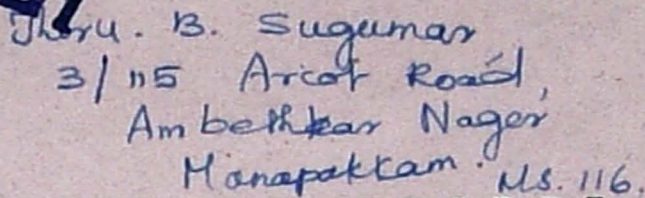 Thiru. B. Sugumar
3/115 Arcot Road,
Ambethkar Nager
Manapakkam. Ms. 116.